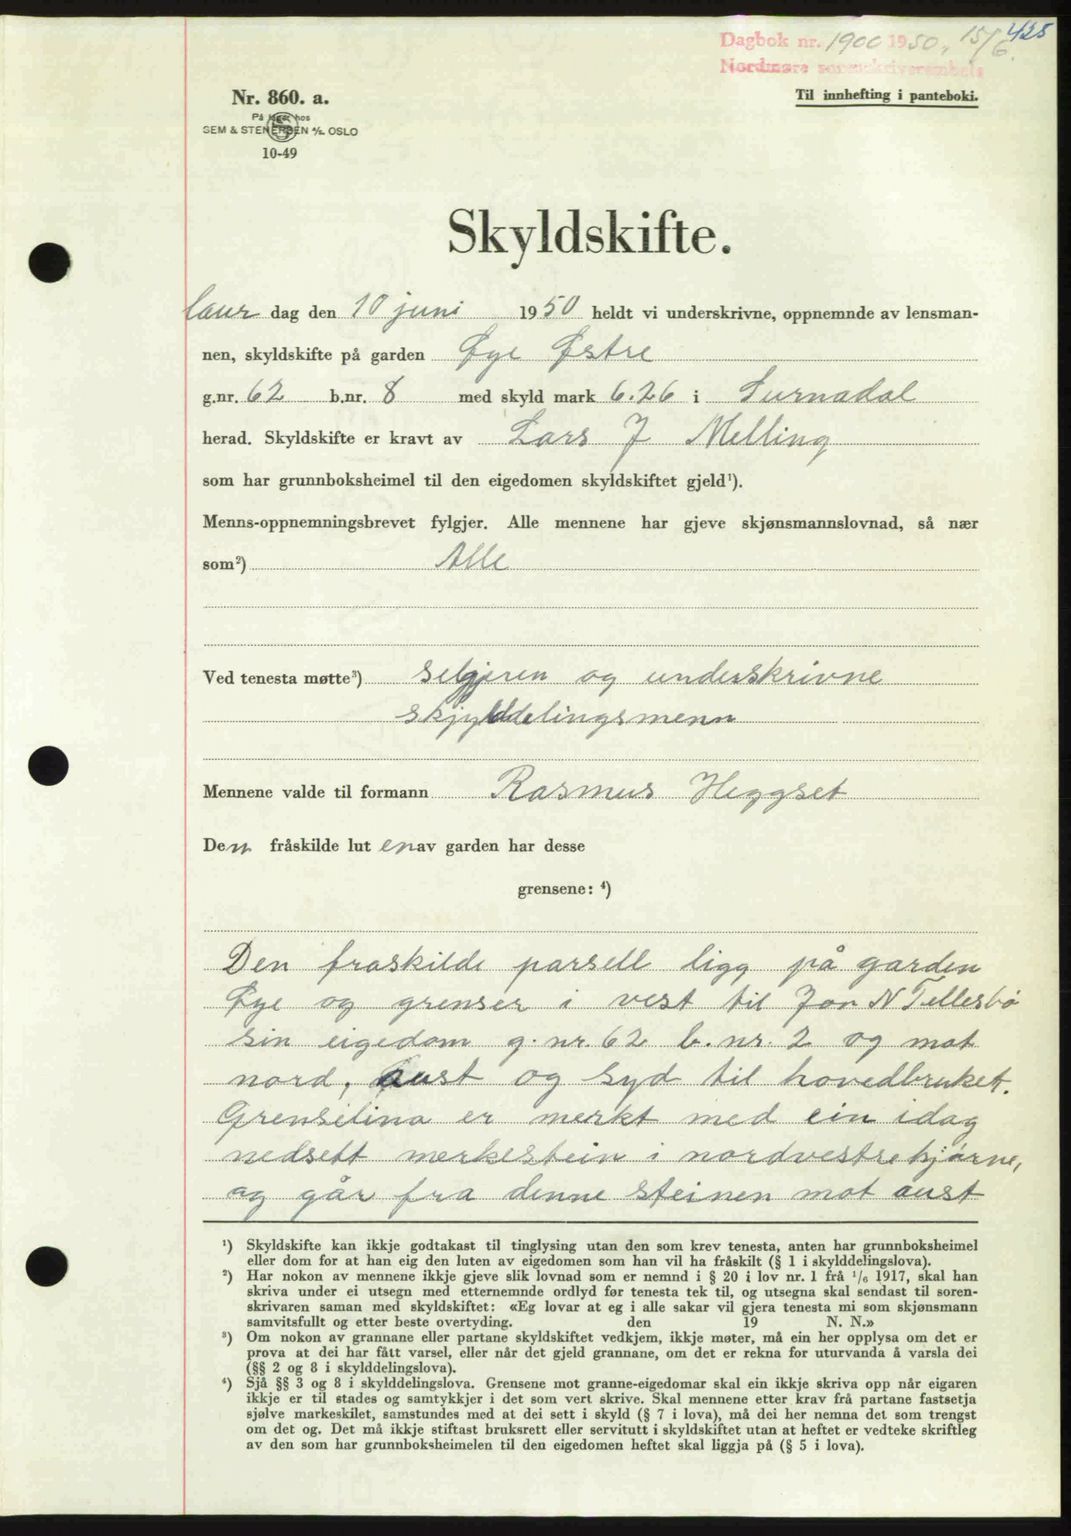 425
Dagbok nr. 1900 1950, 15/6.
Nordmøre sorenskriverembete
Til innhefting i panteboki.
Nr. 860. a.
På lager hos
SEM & STENERSEN A/S OSLO
10-49
Skyldskifte.
Laur dag den 10 juni 1950 heldt vi underskrivne, oppnemnde av lensman-
nen, skyldskifte på garden Øye Østre
g.nr. 62 b.nr. 8 med skyld mark 6.26 i Surnadal
herad. Skyldskifte er kravt av Lars J Melling
som har grunnboksheimel til den eigedomen skyldskiftet gjeld¹).
Menns-oppnemningsbrevet fylgjer. Alle mennene har gjeve skjønsmannslovnad, så nær
som²) Alle
Ved tenesta møtte³) seljeren og underskrivne
skjylddelingsmenn
Mennene valde til formann Rasmus Heggset
Den fråskilde luten av garden har desse
grensene: ⁴)
Den fraskilde parsell ligg på garden
Øye og grenser i vest til Jon N Tellesbø
sin eigedom g.nr. 62 b.nr. 2 og mot
nord, aust og syd til hovedbruket.
Grenselina er merkt med ein idag
nedsett merkestein i nordvestre hjørne,
og går fra denne steinen mot aust
¹) Skyldskifte kan ikkje godtakast til tinglysing utan den som krev tenesta, anten har grunnboksheimel
eller dom for at han eig den luten av eigedomen som han vil ha fråskilt (§ 1 i skylddelingslova).
²) Har nokon av mennene ikkje gjeve slik lovnad som er nemnd i § 20 i lov nr. 1 frå 1/6 1917, skal han
skriva under ei utsegn med etternemnde ordlyd før tenesta tek til, og utsegna skal sendast til soren-
skrivaren saman med skyldskiftet: «Eg lovar at eg i alle sakar vil gjera tenesta mi som skjønsmann
samvitsfullt og etter beste overtyding. den 19 N. N.»
³) Om nokon av grannane eller partane skyldskiftet vedkjem, ikkje møter, må ein her opplysa om det er
prova at dei har fått varsel, eller når det gjeld grannane, om det er rekna for uturvanda å varsla dei
(§§ 2 og 8 i skylddelingslova).
⁴) Sjå §§ 3 og 8 i skylddelingslova. Grensene mot granne-eigedomar skal ein ikkje skriva opp når eigaren
ikkje er til stades og samtykkjer i det som vert skrive. Skal mennene etter krav frå partane fastsetja
sjølve markeskilet, samstundes med at dei sett i skyld (§ 7 i lova), må dei her nemna det som trengst
om det og. Det må ikkje stiftast bruksrett eller servitutt i skyldskiftet utan at heftet er vedteke skriftleg
av den som har grunnboksheimelen til den eigedomen heftet skal liggja på (§ 5 i lova).